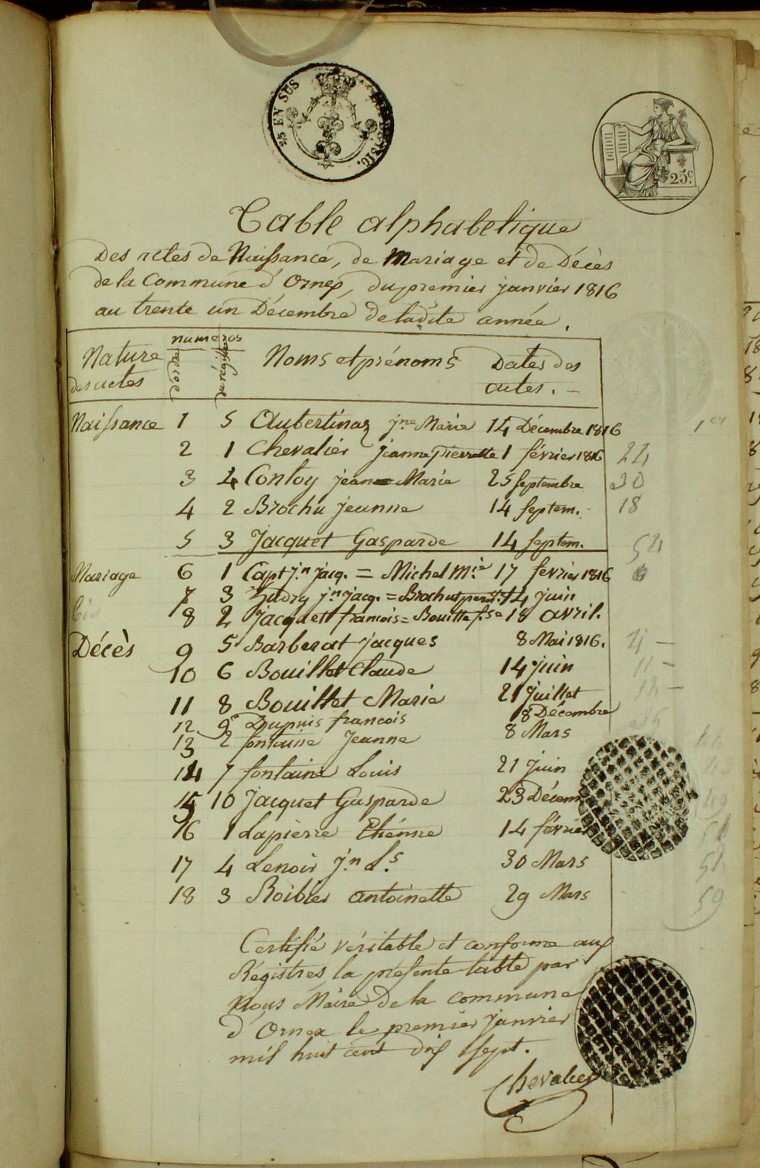 25 EN SUS
25c.
Table alphabetique
Des actes de Naissance, de Mariage et de Décès
de la Commune d'Ornex, du premier janvier 1816
au trente un Décembre de ladite année.
Nature des actes numeros Noms et prénoms Dates des actes.
Naissance 1 5 Aubertinaz jne Marie 14 Décembre 1816
2 1 Chevalier jeanne pierrette 1 février 1816 24
3 4 Contoy jeane Marie 25 Septembre 30
4 2 Brochu jeanne 14 Septem. 18
5 3 Jacquet Gasparde 14 Septem. 54
Mariage 6 1 Capt j.n jacq. = Michel M.ie 17 février 1816
7 3 jn jacq. = 14 juin
8 2 Jacquet francois = Bouillet 18 avril.
Décès 9 5 Barberat Jacques 8 Mai 1816.
10 6 Bouillet Claude 14 juin
11 8 Bouillet Marie 21 Juillet
12 9 Dupuis francois 8 Décembre
13 2 fontaine Jeanne 8 Mars
14 7 fontaine Louis 21 juin
15 10 Jacquet Gasparde 23 Décem
16 1 Lapierre Etiénne 14 févrie
17 4 Lenoir j.n L.s 30 Mars
18 3 Roibier antoinette 29 Mars
Certifié véritable et conforme aux
Régistres la présente table par
Nous Maire de la commune
d'Ornex le premier janvier
mil huit cent dix sept.
Chevalier